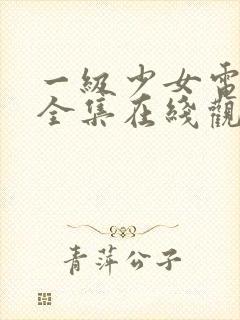 一級少女電
全集在綫觀
青萍公子